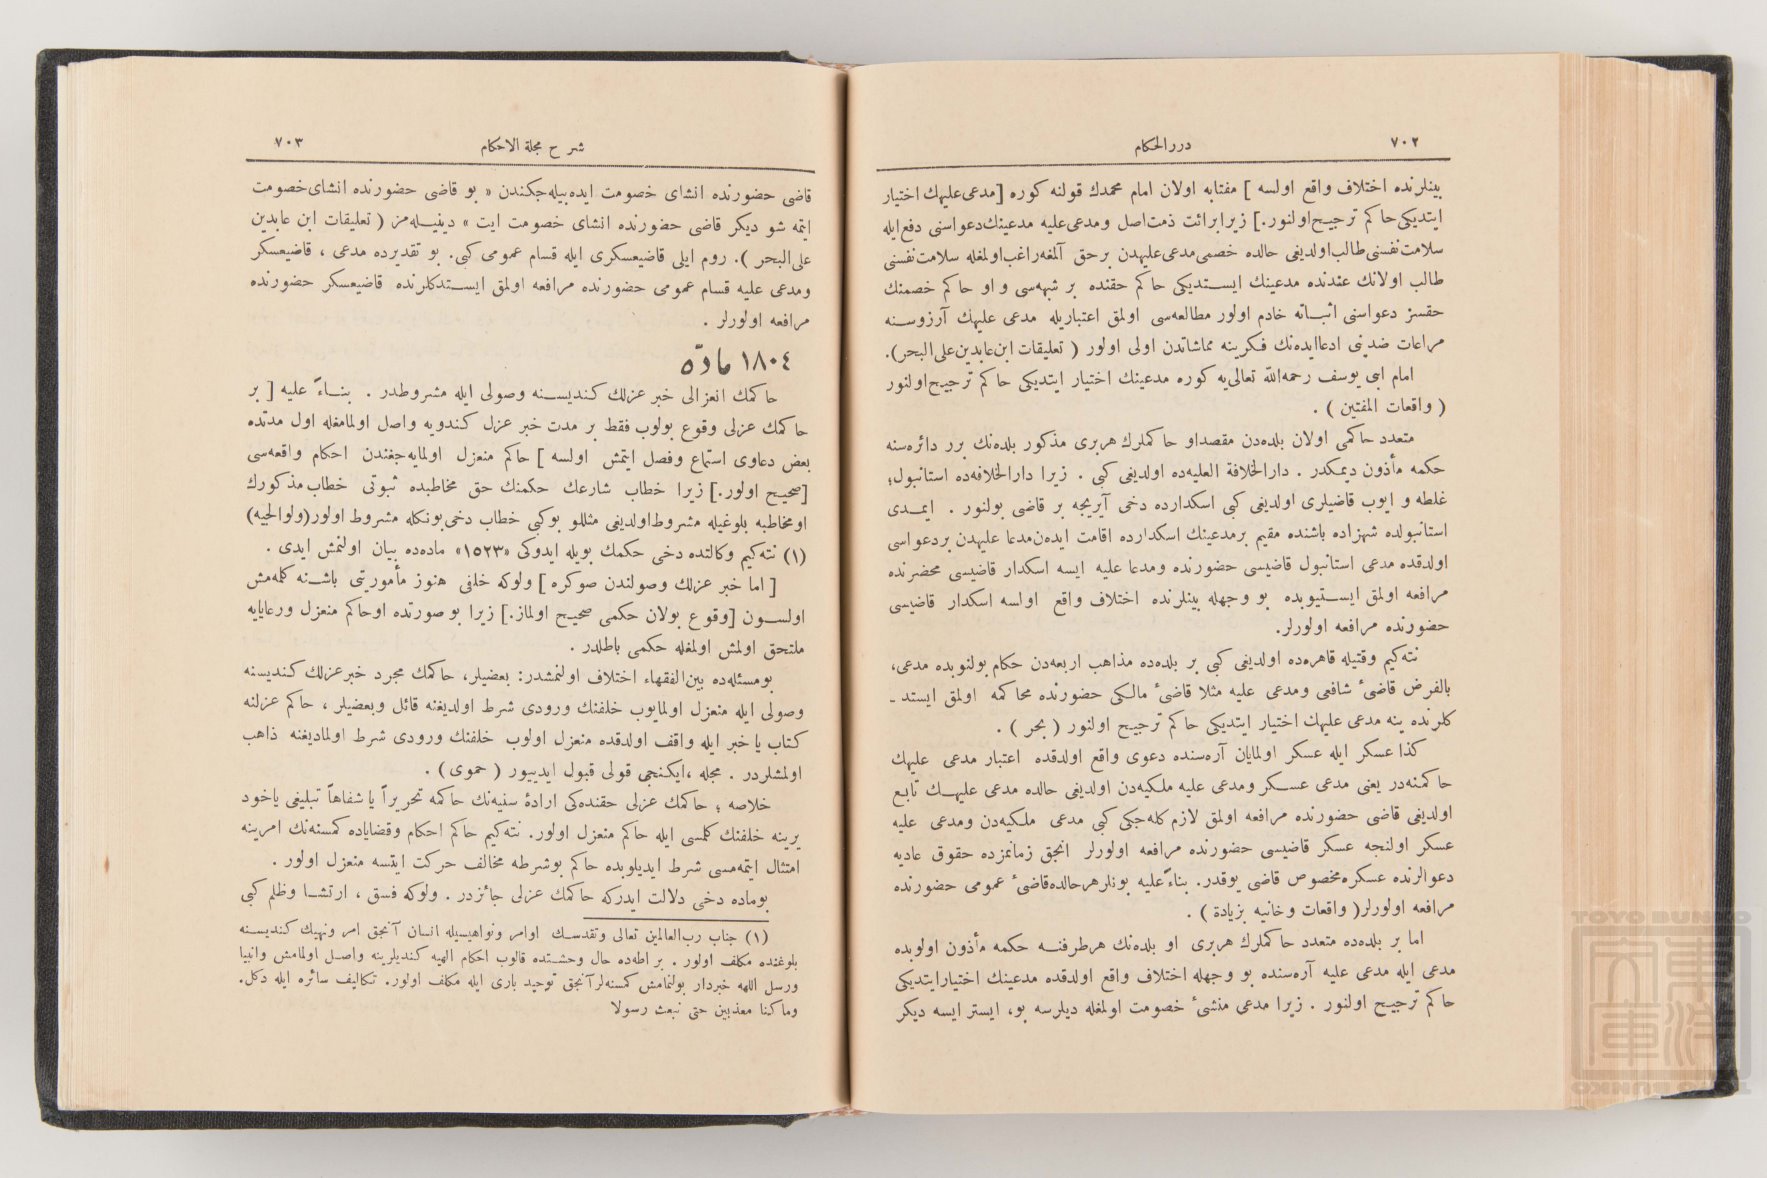 ٧٠٢
دررالحكام
بينلرنده اختلاف واقع اولسه ] مفتابه اولان امام محمدك قولنه كوره [مدعى عليهك اختيار
ايتديكى حاكم ترجيح اولنور.] زيرا برائت ذمت اصل ومدعى عليه مدعينك دعواسنى دفع ايله
سلامت نفسنى طالب اولديغى حالده خصمى مدعى عليهدن برحق آلمغه راغب اولمغله سلامت نفسنى
طالب اولانك عندنده مدعينك ايستديكى حاكم حقنده بر شبهه‌سى و او حاكم خصمنك
حقسز دعواسنى اثباته خادم اولور مطالعه‌سى اولمق اعتباريله مدعى عليهك آرزوسنه
مراعات ضدينى ادعا ايده‌نك فكرينه مماشاتدن اولى اولور ( تعليقات ابن عابدين على البحر).
امام ابى يوسف رحمه‌الله تعالى‌يه كوره مدعينك اختيار ايتديكى حاكم ترجيح اولنور
( واقعات المفتين ) .
متعدد حاكمى اولان بلده‌دن مقصداو حاكملرك هربرى مذكور بلده‌نك برر دائره‌سنه
حكمه مأذون ديمكدر . دارالخلافة العليه‌ده اولديغى كبى . زيرا دارالخلافه‌ده استانبول؛
غلطه و ايوب قاضيلرى اولديغى كبى اسكدارده دخى آيريجه بر قاضى بولنور . ايمدى
استانبولده شهزاده باشنده مقيم برمدعينك اسكدارده اقامت ايده‌ن مدعا عليهدن بردعواسى
اولدقده مدعى استانبول قاضيسى حضورنده ومدعا عليه ايسه اسكدار قاضيسى محضرنده
مرافعه اولمق ايستيوبده بو وجهله بينلرنده اختلاف واقع اولسه اسكدار قاضيسى
حضورنده مرافعه اولورلر.
نته‌كيم وقتيله قاهره‌ده اولديغى كبى بر بلده‌ده مذاهب اربعه‌دن حكام بولنوبده مدعى،
بالفرض قاضىٔ شافعى ومدعى عليه مثلا قاضىٔ مالكى حضورنده محاكمه اولمق ايستد ـ
كلرنده ينه مدعى عليهك اختيار ايتديكى حاكم ترجيح اولنور ( بحر ) .
كذا عسكر ايله عسكر اولمايان آره‌سنده دعوى واقع اولدقده اعتبار مدعى عليهك
حاكمنه‌در يعنى مدعى عسكر ومدعى عليه ملكيه‌دن اولديغى حالده مدعى عليهك تابع
اولديغى قاضى حضورنده مرافعه اولمق لازم كله‌جكى كبى مدعى ملكيه‌دن ومدعى عليه
عسكر اولنجه عسكر قاضيسى حضورنده مرافعه اولورلر انجق زمانمزده حقوق عاديه
دعوالرنده عسكره مخصوص قاضى يوقدر. بناءً عليه بونلر هر حالده قاضىٔ عمومى حضورنده
مرافعه اولورلر( واقعات وخانيه بزيادة ) .
اما بر بلده‌ده متعدد حاكملرك هربرى او بلده‌نك هرطرفنه حكمه مأذون اولوبده
مدعى ايله مدعى عليه آره‌سنده بو وجهله اختلاف واقع اولدقده مدعينك اختيار ايتديكى
حاكم ترجيح اولنور . زيرا مدعى منشىٔ خصومت اولمغله ديلرسه بو، ايستر ايسه ديكر
٧٠٣
شرح مجلة الاحكام
قاضى حضورنده انشاى خصومت ايده‌بيله‌جكندن « بو قاضى حضورنده انشاى خصومت
ايتمه شو ديكر قاضى حضورنده انشاى خصومت ايت » دينيله‌مز ( تعليقات ابن عابدين
على البحر ). روم ايلى قاضيعسكرى ايله قسام عمومى كبى. بو تقديرده مدعى ، قاضيعسكر
ومدعى عليه قسام عمومى حضورنده مرافعه اولمق ايستدكلرنده قاضيعسكر حضورنده
مرافعه اولورلر .
١٨٠٤ مادّه
حاكمك انعزالى خبر عزلك كنديسنه وصولى ايله مشروطدر . بناءً عليه [ بر
حاكمك عزلى وقوع بولوب فقط بر مدت خبر عزل كندويه واصل اولمامغله اول مدتده
بعض دعاوى استماع وفصل ايتمش اولسه ] حاكم منعزل اولمايه‌جغندن احكام واقعه‌سى
[صحيح اولور.] زيرا خطاب شارعك حكمنك حق مخاطبده ثبوتى خطاب مذكورك
اومخاطبه بلوغيله مشروط اولديغى مثللو بوكبى خطاب دخى بونكله مشروط اولور(ولوالجيه)
(١) نته‌كيم وكالتده دخى حكمك بويله ايدوكى «١٥٢٣» ماده‌ده بيان اولنمش ايدى .
[ اما خبر عزلك وصولندن صوكره ] ولوكه خلفى هنوز مأموريتى باشنه كلمه‌مش
اولسون [وقوع بولان حكمى صحيح اولماز.] زيرا بو صورتده اوحاكم منعزل ورعايايه
ملتحق اولمش اولمغله حكمى باطلدر .
بومسئله‌ده بين‌الفقهاء اختلاف اولنمشدر: بعضيلر، حاكمك مجرد خبرعزلك كنديسنه
وصولى ايله منعزل اولمايوب خلفنك ورودى شرط اولديغنه قائل وبعضيلر ، حاكم عزلنه
كتاب يا خبر ايله واقف اولدقده منعزل اولوب خلفنك ورودى شرط اولماديغنه ذاهب
اولمشلردر . مجله ،ايكنجى قولى قبول ايدييور ( حموى ) .
خلاصه ؛ حاكمك عزلى حقنده‌كى ارادهٔ سنيه‌نك حاكمه تحريراً يا شفاهاً تبليغى ياخود
يرينه خلفنك كلمسى ايله حاكم منعزل اولور. نته‌كيم حاكم احكام وقضاياده كمسنه‌نك امرينه
امتثال ايتمه‌مسى شرط ايديلوبده حاكم بوشرطه مخالف حركت ايتسه منعزل اولور .
بوماده دخى دلالت ايدركه حاكمك عزلى جائزدر . ولوكه فسق ، ارتشا وظلم كبى
(١) جناب رب‌العالمين تعالى وتقدسك اوامر ونواهيسيله انسان آنجق امر ونهيك كنديسنه
بلوغنده مكلف اولور . بر اطه‌ده حال وحشتده قالوب احكام الهيه كنديلرينه واصل اولمامش وانبيا
ورسل اللهه خبردار بولنمامش كمسنه‌لر آنجق توحيد بارى ايله مكلف اولور. تكاليف سائره ايله دكل.
وماكنا معذبين حتى نبعث رسولا
TOYO BUNKO
東洋文庫
TOYO BUNKO